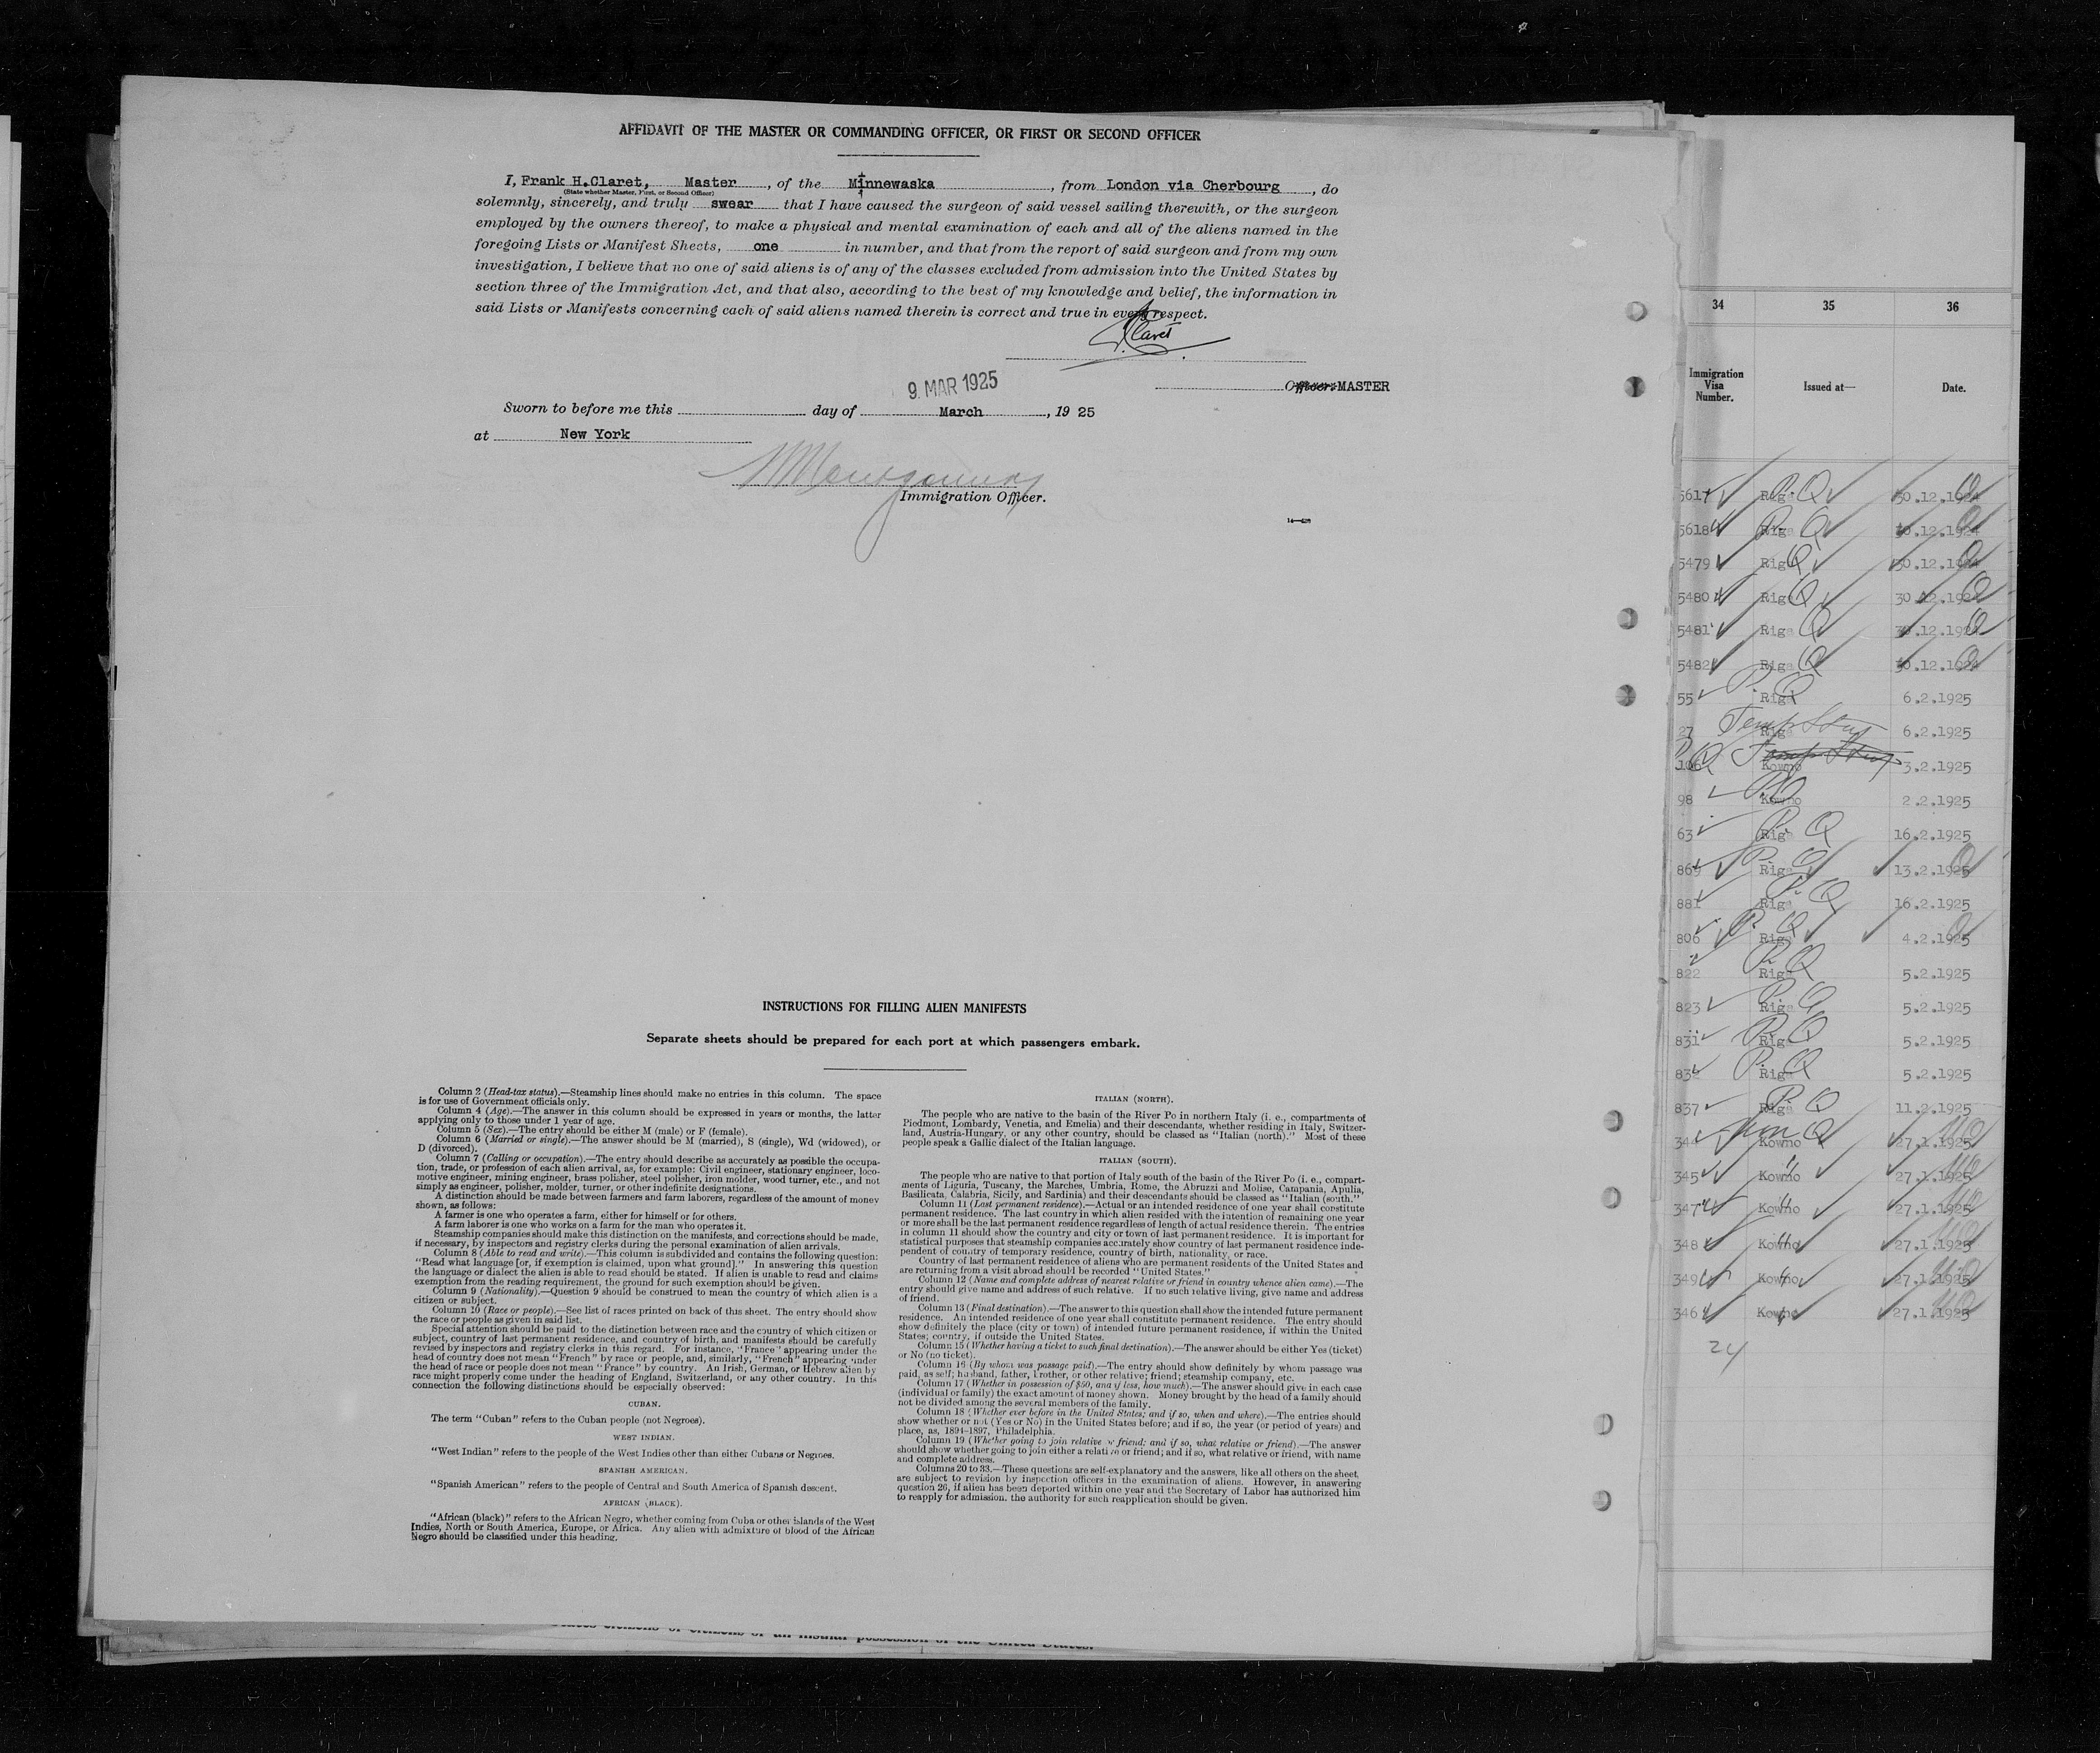 AFFIDAVIT OF THE MASTER OR COMMANDING OFFICER, OR FIRST OR SECOND OFFICER
I, Frank H. Claret, Master, of the Minnewaska, from London via Cherbourg, do
(State whether Master, First, or Second Officer)
solemnly, sincerely, and truly swear that I have caused the surgeon of said vessel sailing therewith, or the surgeon
employed by the owners thereof, to make a physical and mental examination of each and all of the aliens named in the
foregoing Lists or Manifest Sheets, one in number, and that from the report of said surgeon and from my own
investigation, I believe that no one of said aliens is of any of the classes excluded from admission into the United States by
section three of the Immigration Act, and that also, according to the best of my knowledge and belief, the information in
said Lists or Manifests concerning each of said aliens named therein is correct and true in every respect.
Claret
Officer. MASTER
9 MAR 1925
Sworn to before me this day of March, 1925
at New York
Montgomery
Immigration Officer.
INSTRUCTIONS FOR FILLING ALIEN MANIFESTS
Separate sheets should be prepared for each port at which passengers embark.
Column 2 (Head-tax status).—Steamship lines should make no entries in this column. The space
is for use of Government officials only.
Column 4 (Age).—The answer in this column should be expressed in years or months, the latter
applying only to those under 1 year of age.
Column 5 (Sex).—The entry should be either M (male) or F (female).
Column 6 (Married or single).—The answer should be M (married), S (single), Wd (widowed), or
D (divorced).
Column 7 (Calling or occupation).—The entry should describe as accurately as possible the occupa-
tion, trade, or profession of each alien arrival, as, for example: Civil engineer, stationary engineer, loco-
motive engineer, mining engineer, brass polisher, steel polisher, iron molder, wood turner, etc., and not
simply as engineer, polisher, molder, turner, or other indefinite designations.
A distinction should be made between farmers and farm laborers, regardless of the amount of money
shown, as follows:
A farmer is one who operates a farm, either for himself or for others.
A farm laborer is one who works on a farm for the man who operates it.
Steamship companies should make this distinction on the manifests, and corrections should be made,
if necessary, by inspectors and registry clerks during the personal examination of alien arrivals.
Column 8 (Able to read and write).—This column is subdivided and contains the following question:
"Read what language [or, if exemption is claimed, upon what ground]." In answering this question
the language or dialect the alien is able to read should be stated. If alien is unable to read and claims
exemption from the reading requirement, the ground for such exemption should be given.
Column 9 (Nationality).—Question 9 should be construed to mean the country of which alien is a
citizen or subject.
Column 10 (Race or people).—See list of races printed on back of this sheet. The entry should show
the race or people as given in said list.
Special attention should be paid to the distinction between race and the country of which citizen or
subject, country of last permanent residence, and country of birth, and manifests should be carefully
revised by inspectors and registry clerks in this regard. For instance, "France" appearing under the
head of country does not mean "French" by race or people, and, similarly, "French" appearing under
the head of race or people does not mean "France" by country. An Irish, German, or Hebrew alien by
race might properly come under the heading of England, Switzerland, or any other country. In this
connection the following distinctions should be especially observed:
CUBAN.
The term "Cuban" refers to the Cuban people (not Negroes).
WEST INDIAN.
"West Indian" refers to the people of the West Indies other than either Cubans or Negroes.
SPANISH AMERICAN.
"Spanish American" refers to the people of Central and South America of Spanish descent.
AFRICAN (BLACK).
"African (black)" refers to the African Negro, whether coming from Cuba or other islands of the West
Indies, North or South America, Europe, or Africa. Any alien with admixture of blood of the African
Negro should be classified under this heading.
ITALIAN (NORTH).
The people who are native to the basin of the River Po in northern Italy (i. e., compartments of
Piedmont, Lombardy, Venetia, and Emelia) and their descendants, whether residing in Italy, Switzer-
land, Austria-Hungary, or any other country, should be classed as "Italian (north)." Most of these
people speak a Gallic dialect of the Italian language.
ITALIAN (SOUTH).
The people who are native to that portion of Italy south of the basin of the River Po (i. e., compart-
ments of Liguria, Tuscany, the Marches, Umbria, Rome, the Abruzzi and Molise, Campania, Apulia,
Basilicata, Calabria, Sicily, and Sardinia) and their descendants should be classed as "Italian (south."
Column 11 (Last permanent residence).—Actual or an intended residence of one year shall constitute
permanent residence. The last country in which alien resided with the intention of remaining one year
or more shall be the last permanent residence regardless of length of actual residence therein. The entries
in column 11 should show the country and city or town of last permanent residence. It is important for
statistical purposes that steamship companies accurately show country of last permanent residence inde-
pendent of country of temporary residence, country of birth, nationality, or race.
Country of last permanent residence of aliens who are permanent residents of the United States and
are returning from a visit abroad should be recorded "United States."
Column 12 (Name and complete address of nearest relative or friend in country whence alien came).—The
entry should give name and address of such relative. If no such relative living, give name and address
of friend.
Column 13 (Final destination).—The answer to this question shall show the intended future permanent
residence. An intended residence of one year shall constitute permanent residence. The entry should
show definitely the place (city or town) of intended future permanent residence, if within the United
States; country, if outside the United States.
Column 15 (Whether having a ticket to such final destination).—The answer should be either Yes (ticket)
or No (no ticket).
Column 16 (By whom was passage paid).—The entry should show definitely by whom passage was
paid, as self; husband, father, brother, or other relative; friend; steamship company, etc.
Column 17 (Whether in possession of $50, and if less, how much).—The answer should give in each case
(individual or family) the exact amount of money shown. Money brought by the head of a family should
not be divided among the several members of the family.
Column 18 (Whether ever before in the United States; and if so, when and where).—The entries should
show whether or not (Yes or No) in the United States before; and if so, the year (or period of years) and
place, as, 1894–1897, Philadelphia.
Column 19 (Whether going to join relative or friend; and if so, what relative or friend).—The answer
should show whether going to join either a relative or friend; and if so, what relative or friend, with name
and complete address.
Columns 20 to 33.—These questions are self-explanatory and the answers, like all others on the sheet,
are subject to revision by inspection officers in the examination of aliens. However, in answering
question 26, if alien has been deported within one year and the Secretary of Labor has authorized him
to reapply for admission, the authority for such reapplication should be given.
possession of the United States.
34 35 36
Immigration Visa Number. Issued at— Date.
5617 Riga P. Q 30.12.1924
5618 Riga P. Q 30.12.1924
5479 Riga Q 30.12.1924
5480 Riga Q 30.12.1924
5481 Riga Q 30.12.1924
5482 Riga Q 30.12.1924
55 Riga P. Q 6.2.1925
27 Riga Temp Stay 6.2.1925
106 Kowno Temp Stay 3.2.1925
98 Kowno P. Q 2.2.1925
63 Riga P. Q 16.2.1925
869 Riga P. Q 13.2.1925
881 Riga P. Q 16.2.1925
806 Riga P. Q 4.2.1925
822 Riga P. Q 5.2.1925
823 Riga P. Q 5.2.1925
831 Riga P. Q 5.2.1925
832 Riga P. Q 5.2.1925
837 Riga P. Q 11.2.1925
344 Kowno Non Q 27.1.1925
345 Kowno " 27.1.1925
347 Kowno " 27.1.1925
348 Kowno " 27.1.1925
349 Kowno " 27.1.1925
346 Kowno " 27.1.1925
24